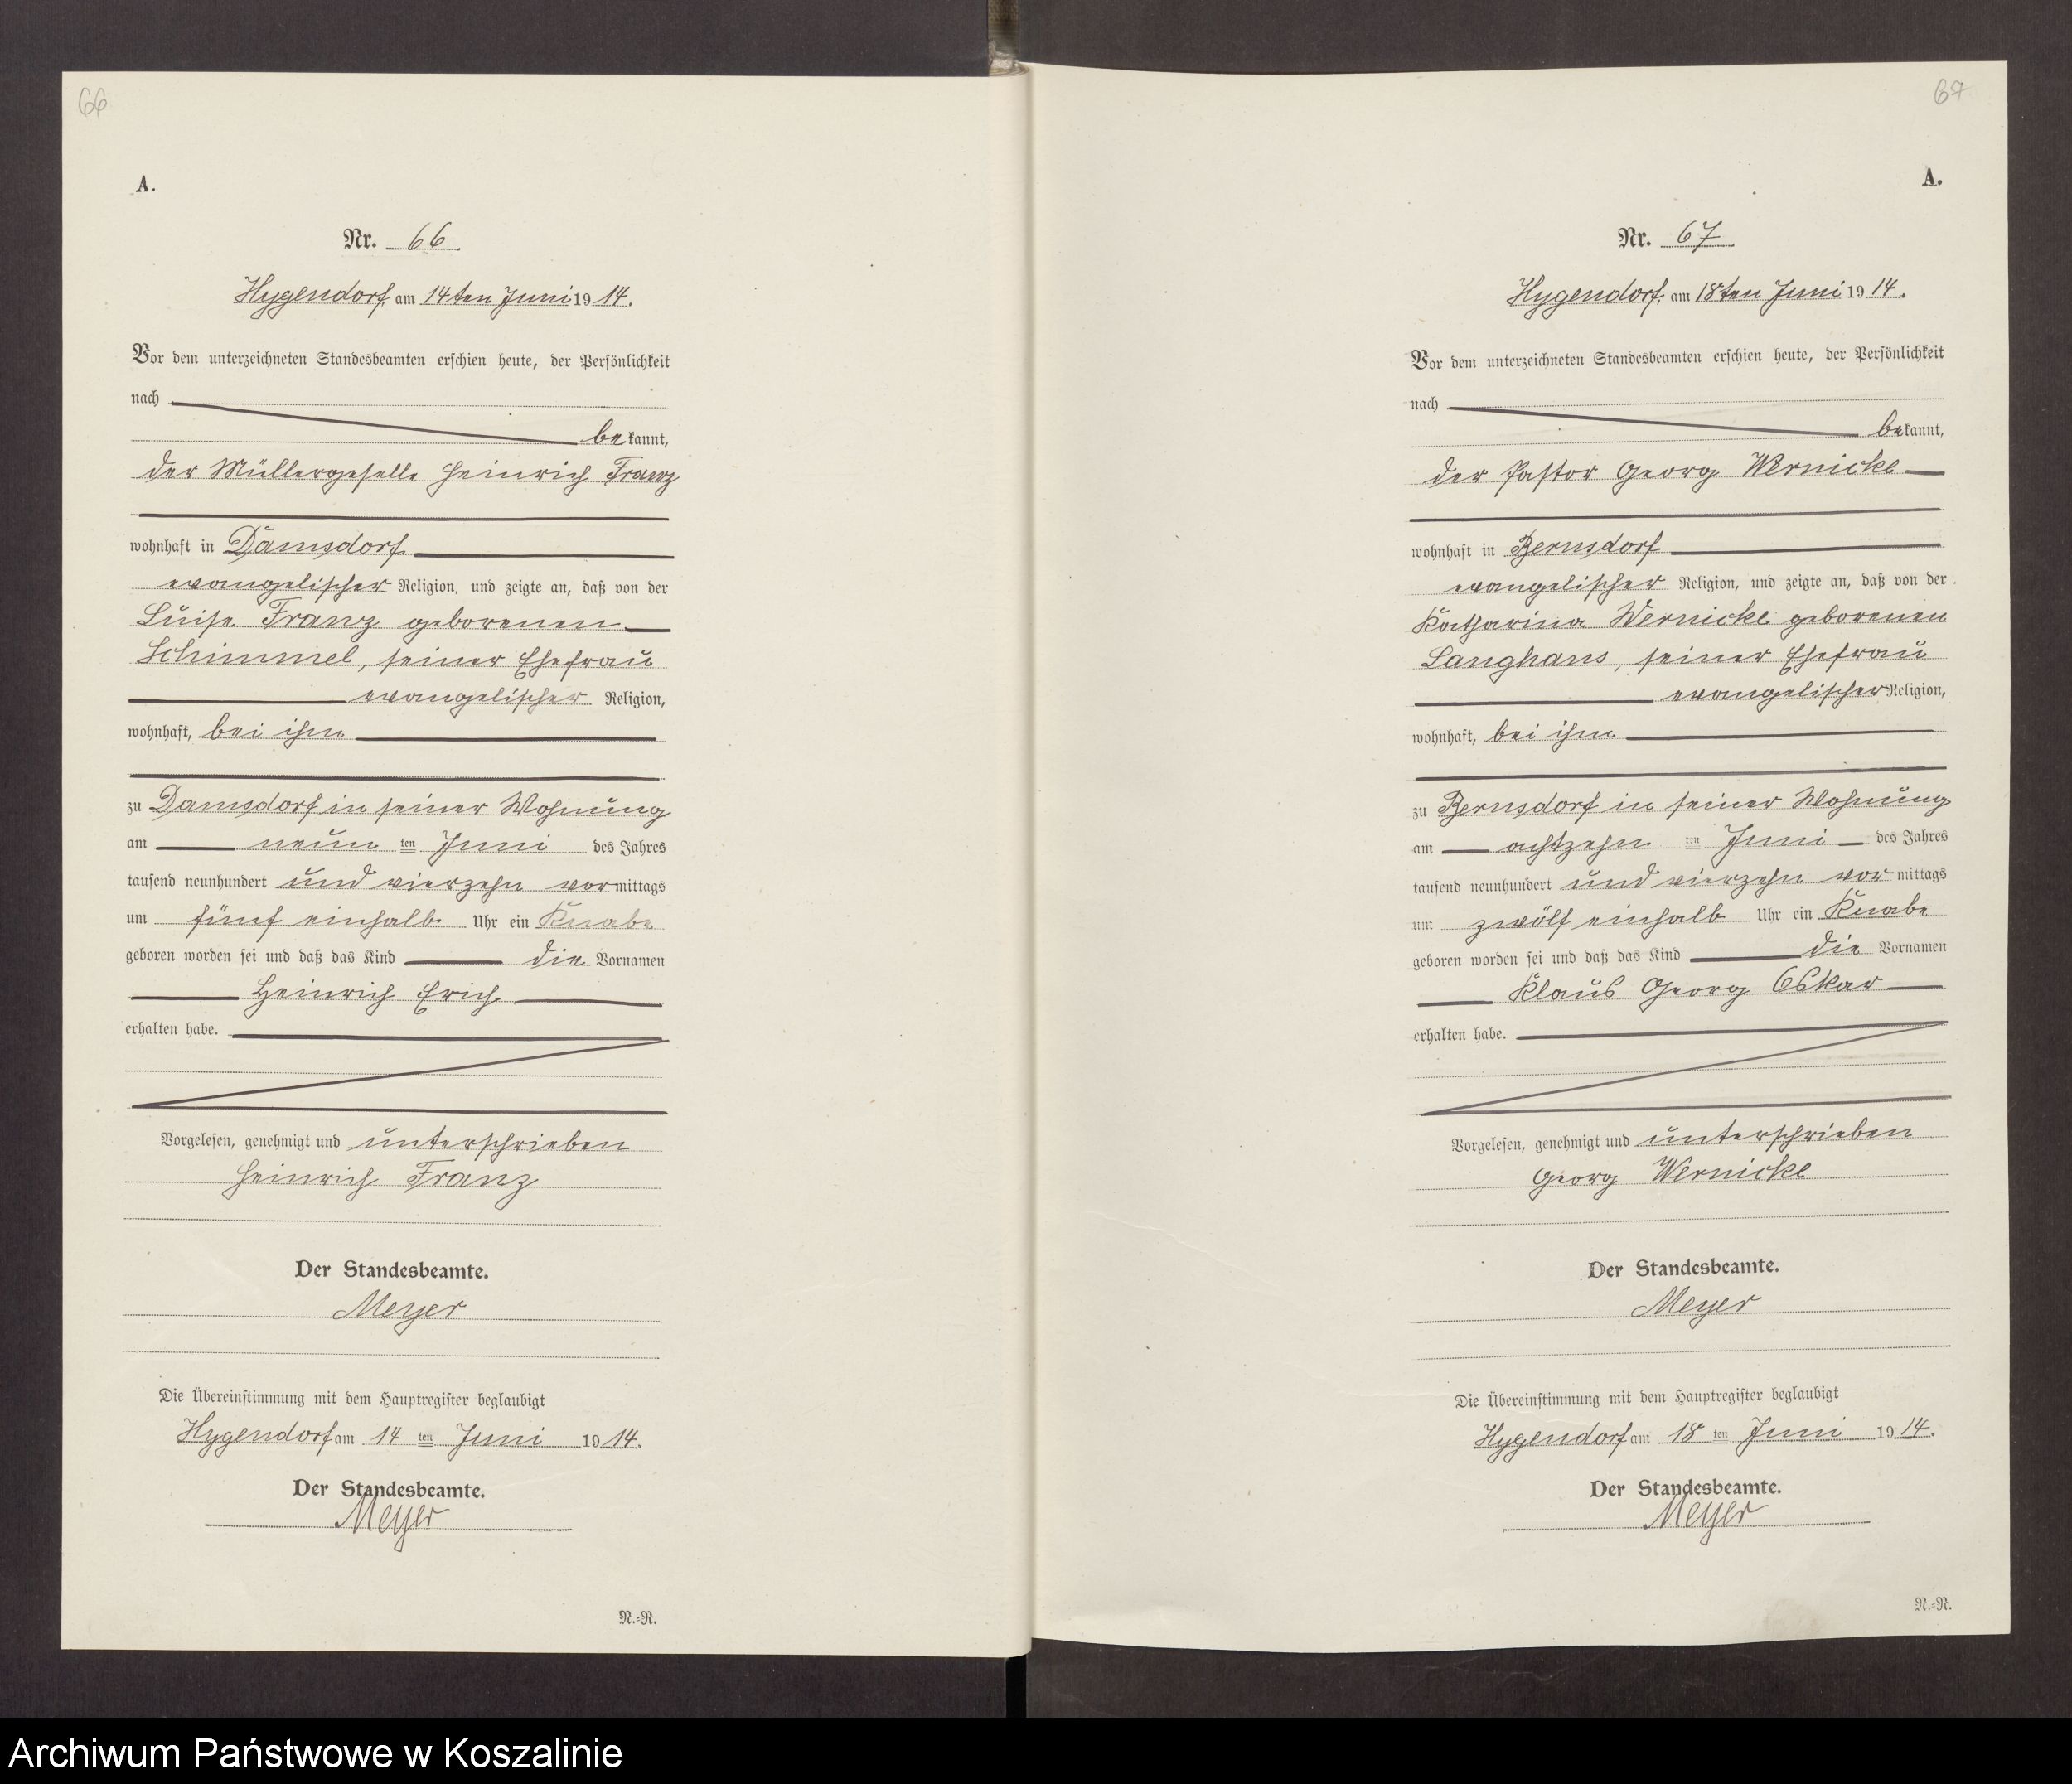 66
A.
Nr. 66.
Hygendorf, am 14ten Juni 19 14.
Vor dem unterzeichneten Standesbeamten erschien heute, der Persönlichkeit
nach
bekannt,
der Müllergeselle Heinrich Franz
wohnhaft in Damsdorf
evangelischer Religion, und zeigte an, daß von der
Luise Franz geborenen
Schimmel, seiner Ehefrau
evangelischer Religion,
wohnhaft, bei ihm
zu Damsdorf in seiner Wohnung
am neun ten Juni des Jahres
tausend neunhundert und vierzehn vormittags
um fünf einhalb Uhr ein Knabe
geboren worden sei und daß das Kind die Vornamen
Heinrich Erich
erhalten habe.
Vorgelesen, genehmigt und unterschrieben
Heinrich Franz
Der Standesbeamte.
Meyer
Die Übereinstimmung mit dem Hauptregister beglaubigt
Hygendorf am 14 ten Juni 19 14.
Der Standesbeamte.
Meyer
N.-R.
67
A.
Nr. 67
Hygendorf, am 18ten Juni 19 14.
Vor dem unterzeichneten Standesbeamten erschien heute, der Persönlichkeit
nach
bekannt,
der Pastor Georg Wernicke
wohnhaft in Bernsdorf
evangelischer Religion, und zeigte an, daß von der
Katharina Wernicke geborenen
Langhans, seiner Ehefrau
evangelischer Religion,
wohnhaft, bei ihm
zu Bernsdorf in seiner Wohnung
am achtzehn ten Juni des Jahres
tausend neunhundert und vierzehn vormittags
um zwölf einhalb Uhr ein Knabe
geboren worden sei und daß das Kind die Vornamen
Klaus Georg Oskar
erhalten habe.
Vorgelesen, genehmigt und unterschrieben
Georg Wernicke
Der Standesbeamte.
Meyer
Die Übereinstimmung mit dem Hauptregister beglaubigt
Hygendorf am 18 ten Juni 19 14.
Der Standesbeamte.
Meyer
N.-R.
Archiwum Państwowe w Koszalinie